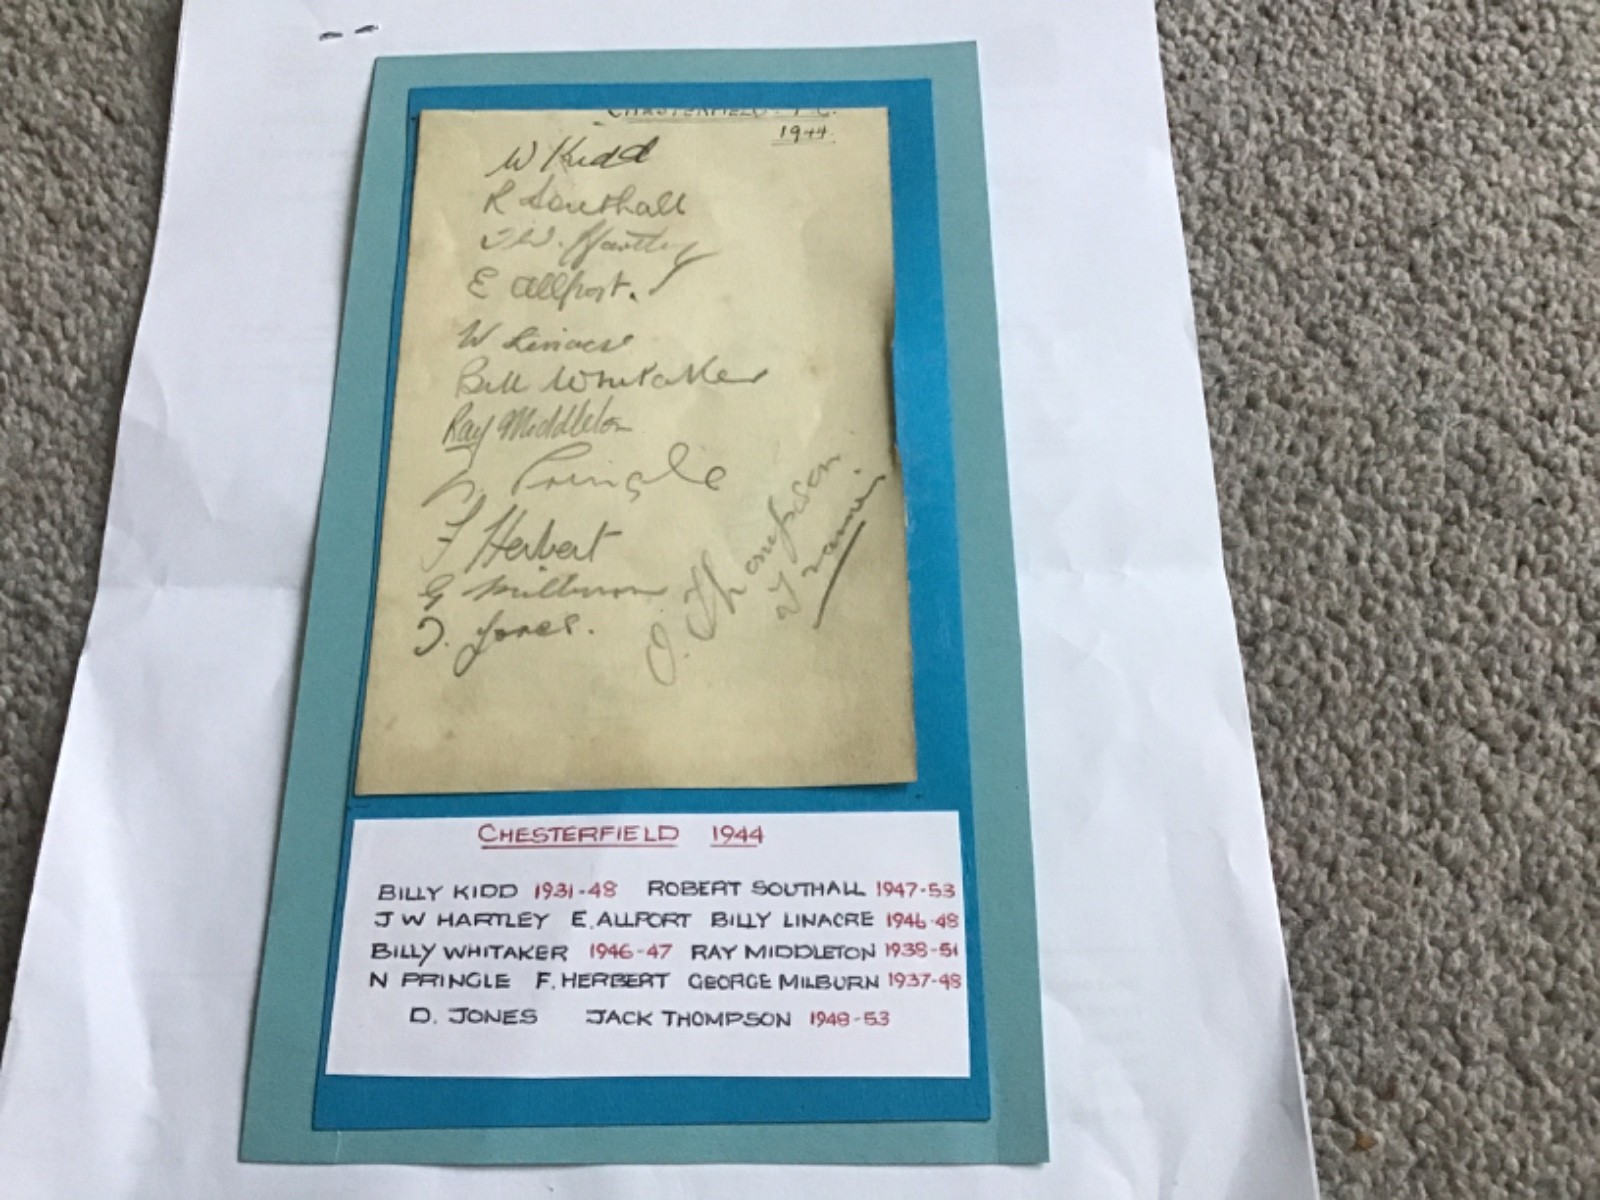 CHESTERFIELD. F.C.
1944.
W Kidd
R Southall
J.W. Hartley
E Allport.
W Linacre
Bill Whitaker
Ray Middleton
N Pringle
F Herbert
G Milburn
D. Jones.
J. Thompson
Trainer
CHESTERFIELD 1944
BILLY KIDD 1931-48 ROBERT SOUTHALL 1947-53
J W HARTLEY E. ALLPORT BILLY LINACRE 1946-48
BILLY WHITAKER 1946-47 RAY MIDDLETON 1938-51
N PRINGLE F. HERBERT GEORGE MILBURN 1937-48
D. JONES JACK THOMPSON 1948-53